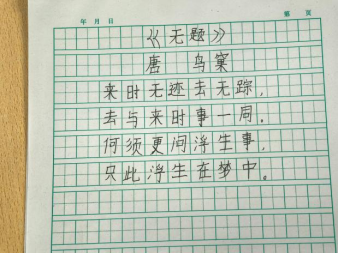 年 月 日 第 页
《无题》
唐 鸟窠
来时无迹去无踪,
去与来时事一同。
何须更问浮生事,
只此浮生在梦中。